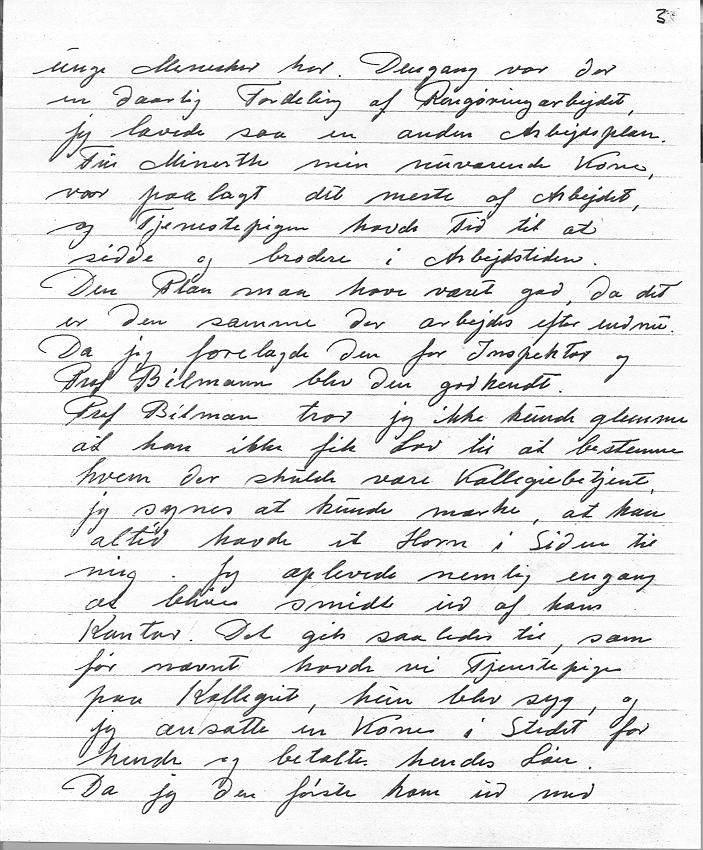 3
unge Mennesker har. Dengang var der
en daarlig Fordeling af Rengøringarbejdet,
jeg lavede saa en anden Arbejdsplan.
Frk Minerthe min nuværende Kone,
var paalagt det meste af Arbejdet,
og Tjenestepigen havde Tid til at
sidde og brodere i Arbejdstiden.
Den Plan maa have været god, da det
er den samme der arbejdes efter endnu.
Da jeg forelagde den for Inspektør og
Prof Bilmann blev den godkendt.
Prof Bilman tror jeg ikke kunde glemme
at han ikke fik Lov til at bestemme
hvem der skulde være Kollegiebetjent,
jeg synes at kunde mærke, at han
altid havde et Horn i Siden til
mig. Jeg oplevede nemlig engang
at blive smidt ud af hans
Kontor. Det gik saaledes til, som
før nævnt havde vi Tjenstepige
paa Kollegiet, hun blev syg, og
jeg ansatte en Kone i Stedet for
hende og betalte hendes Løn.
Da jeg den første kom ud med